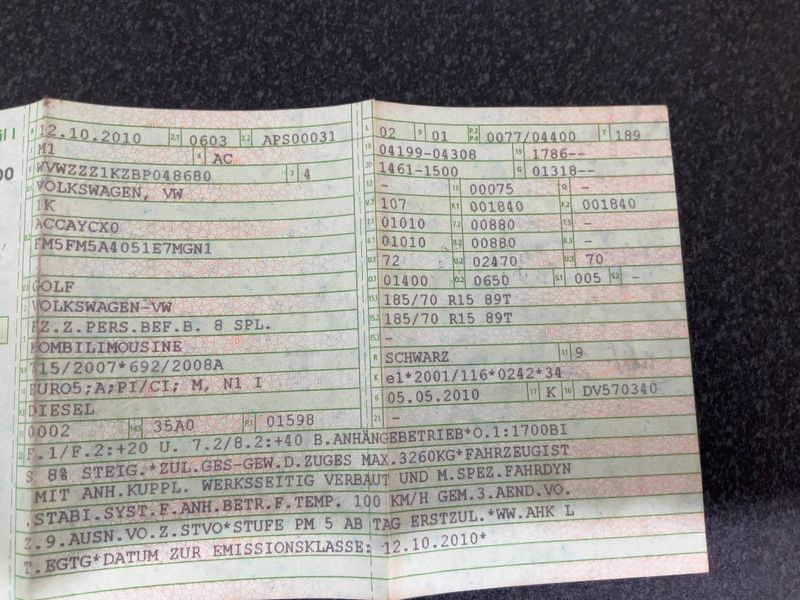 12.10.2010 2.1 0603 2.2 APS00031
M1 4 AC
WVWZZZ1KZBP048680 3 4
VOLKSWAGEN, VW
1K
ACCAYCX0
FM5FM5A4051E7MGN1
GOLF
VOLKSWAGEN-VW
FZ.Z.PERS.BEF.B. 8 SPL.
KOMBILIMOUSINE
715/2007*692/2008A
EURO5;A;PI/CI; M, N1 I
DIESEL
0002 35A0 P.1 01598
L 02 9 01 P.2 P.4 0077/04400 T 189
18 04199-04308 19 1786--
20 1461-1500 G 01318--
12 - 13 00075 Q -
V.7 107 F.1 001840 F.2 001840
7.1 01010 7.2 00880 7.3 -
8.1 01010 8.2 00880 8.3 -
U.1 72 U.2 02470 U.3 70
O.1 01400 O.2 0650 S.1 005 S.2 -
15.1 185/70 R15 89T
15.2 185/70 R15 89T
15.3 -
R SCHWARZ 11 9
K e1*2001/116*0242*34
6 05.05.2010 17 K 16 DV570340
21 -
F.1/F.2:+20 U. 7.2/8.2:+40 B.ANHÄNGEBETRIEB*O.1:1700BI
S 8% STEIG.*ZUL.GES-GEW.D.ZUGES MAX.3260KG*FAHRZEUGIST
MIT ANH.KUPPL. WERKSSEITIG VERBAUT UND M.SPEZ.FAHRDYN
.STABI.SYST.F.ANH.BETR.F.TEMP. 100 KM/H GEM.3.AEND.VO.
Z.9.AUSN.VO.Z.STVO*STUFE PM 5 AB TAG ERSTZUL.*WW.AHK L
T.EGTG*DATUM ZUR EMISSIONSKLASSE: 12.10.2010*